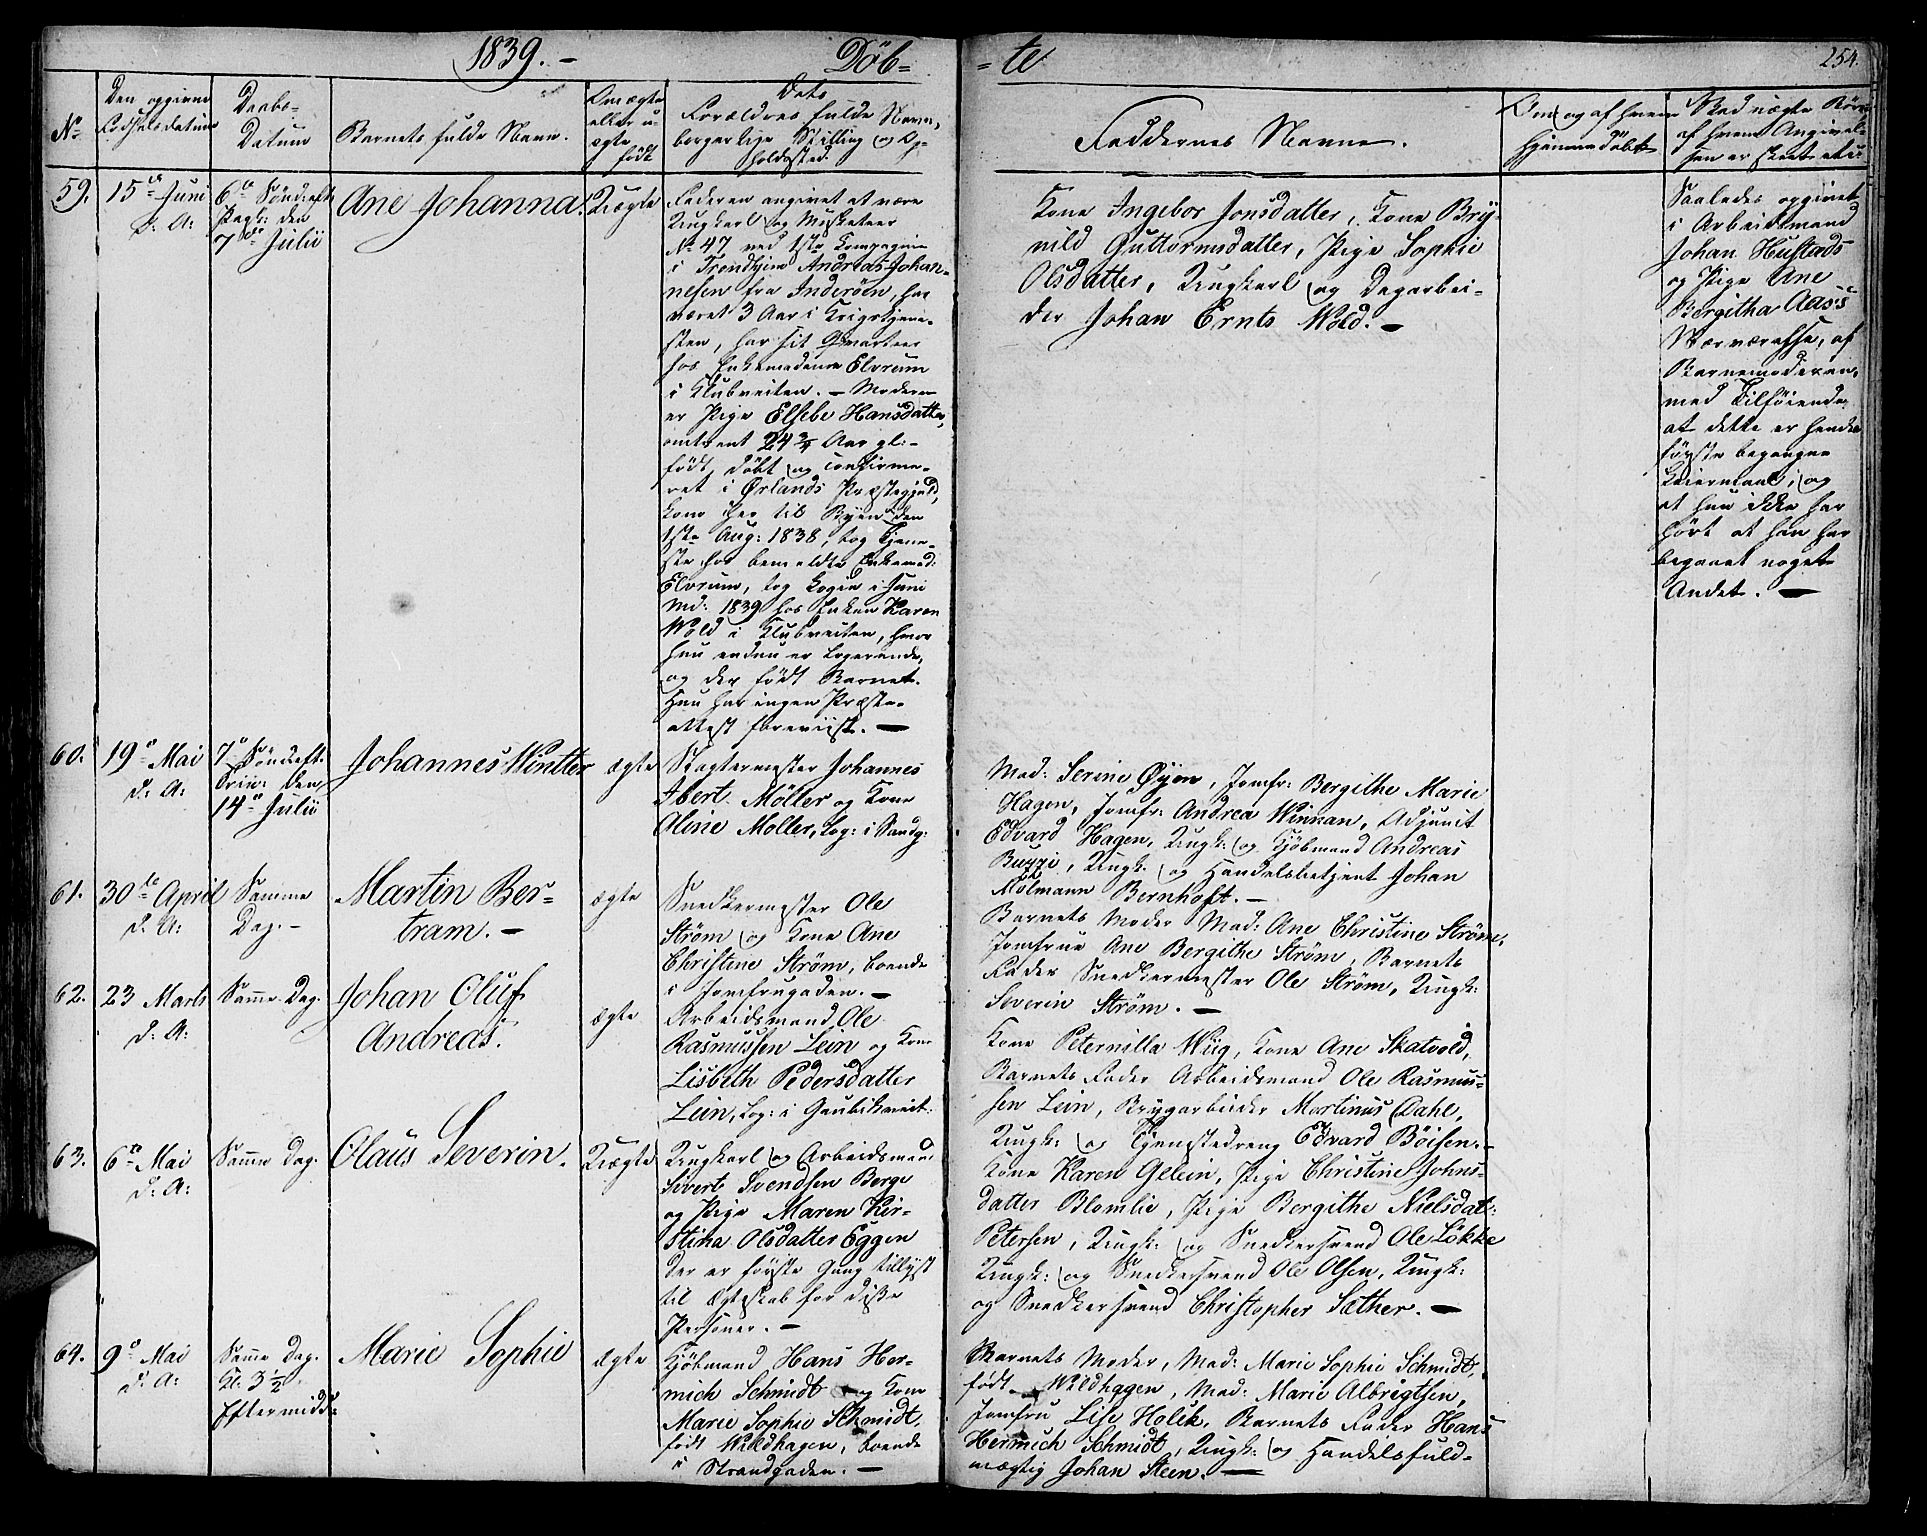 1839. – Döb-
- te 254.
No
Den opgivne Fødselsdatum
Daabs-Datum
Barnets fulde Navn.
Om ægte eller u-ægte født
Dets Forældres fulde Navn, borgerlige Stilling og Op-holdssted.
Faddernes Navne.
Om og af hvem hjemmedöbt
Ved uægte Børn af hvem Angivel-sen er skeet etc
59.
15de Juni
d: A:
6te Sönd: eft.
den
7de Julii
Ane Johanna.
Uægte
Faderen angivet at være
Ungkarl og Musketeer
No 47 ved 1ste Compagnie
i Trondhjem Andreas Johan-
nesen fra Inderöen, har
været 3 Aar i Krigstjene-
sten, har sit Qvarteer
hos Enkemadame Elvrum
i Klubveiten. – Moderen
er Pige Elsebe Hansdatter,
omtrent 24 3/4 Aar gl: –
født, döbt og confirme-
ret i Ørlands Præstegjeld,
kom her til Byen den
1ste Aug: 1838, tog Tjene-
ste hos bemeldte Enkemad:
Elvrum, tog Logie i Juni
Md: 1839 hos Enken Karen
Wold i Klubveiten, hvor
hun endnu er logerende,
og der født Barnet.
Hun har ingen Præste-
attest foreviist. –
Kone Ingebor Jonsdatter, Kone Bry-
nild Guttormsdatter, Pige Sophie
Olsdatter, Ungkarl og Dagarbei-
der Johan Ernts Wold. –
Saaledes opgivet
i Arbeidsmand
Johan Hustads
og Pige Ane
Bergitha Aas's
Nærværelse, af
Barnemoderen,
med Tilföiende,
at dette er hendes
förste begangne
Leiermaal, og
at hun ikke har
hört at han har
begaaet noget
Andet. –
60.
19de Mai
d: A:
7de Sönd: eft.
Trin: den
14de Julii
Johannes Wintter
ægte
Slagtermester Johannes
Ibert Möller og Kone
Oline Moller, log: i Sandg:
Mad: Serine Øyen, Jomfr: Bergithe Marie
Hagen, Jomfr: Andrea Winnan, Adjunct
Edvard Hagen, Ungk: og Kjöbmand Andreas
Buzzi, Ungk: og Handelsbetjent Johan
Mölmann Bernhoft. –
61.
30te April
d: A:
Samme
Dag. –
Martin Ber-
tram. –
ægte
Snedkermester Ole
Ström og Kone Ane
Christine Ström, boende
i Jomfrugaden. –
Barnets Moder Mad: Ane Christine Ström,
Jomfrue Ane Bergithe Ström, Barnets
Fader Snedkermester Ole Ström, Ungk:
Severin Ström. –
62.
23 Marts
d: A:
Samme Dag.
Johan Oluf
Andreas.
ægte
Arbeidsmand Ole
Rasmussen Lein og Kone
Lisbeth Pedersdatter
Lein, log: i Gaubekveit:
Kone Peternilla Wüg, Kone Ane Skatvold,
Barnets Fader Arbeidsmand Ole Rasmus-
sen Lein, Brygarbeider Martinus Dahl,
Ungk: og Tjenestedreng Edvard Böisen. –
63.
6te Mai
d: A:
Samme Dag.
Olaus Severin.
Uægte
Ungkarl og Arbeidsmand
Sivert Svendsen Berge
og Pige Maren Kir-
stina Olsdatter Eggen
Der er förste Gang tillyst
til Ægteskab for disse
Personer. –
Kone Karen Gelein, Pige Christine Johns-
datter Blomlie, Pige Bergithe Nielsdat:
Petersen, Ungk: og Snedkersvend Ole Lökke
Ungk: og Snedkersvend Ole Olsen, Ungk:
og Snedkersvend Christopher Sæther. –
64.
9de Mai
d: A:
Samme Dag.
Kl: 3 1/2
Eftermidd:
Marie Sophie
ægte
Kjöbmand Hans Her-
mich Schmidt og Kone
Marie Sophie Schmidt,
født Wildhagen, boende
i Strandgaden. –
Barnets Moder, Mad: Marie Sophie Schmidt,
født Wildhagen, Mad: Marie Albrigtsen,
Jomfru Lise Holck, Barnets Fader Hans
Hermich Schmidt, Ungk: og Handelsfuld-
mægtig Johan Steen. –